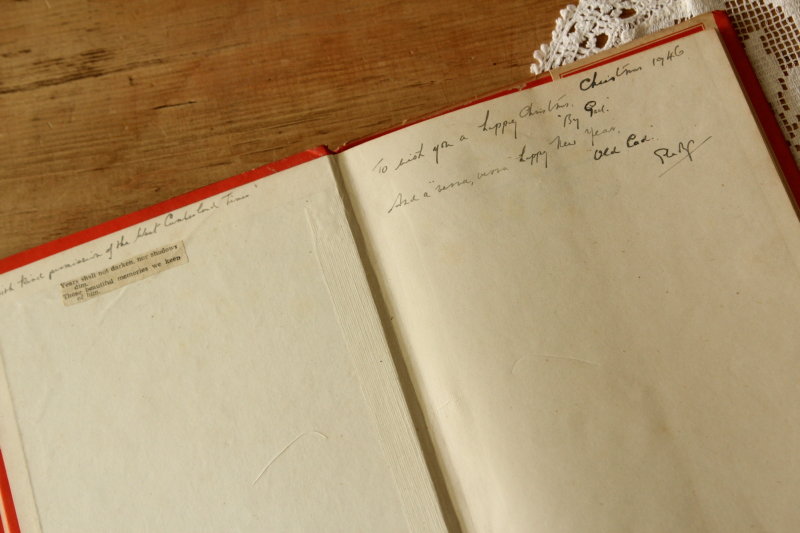 kind permission of the West Cumberland Times'
Years shall not darken, nor shadows
dim.
Those beautiful memories we keep
of him.
Christmas 1946
To wish you a happy Christmas.
"By God."
And a "verra, verra" happy New Year.
Old Cod.